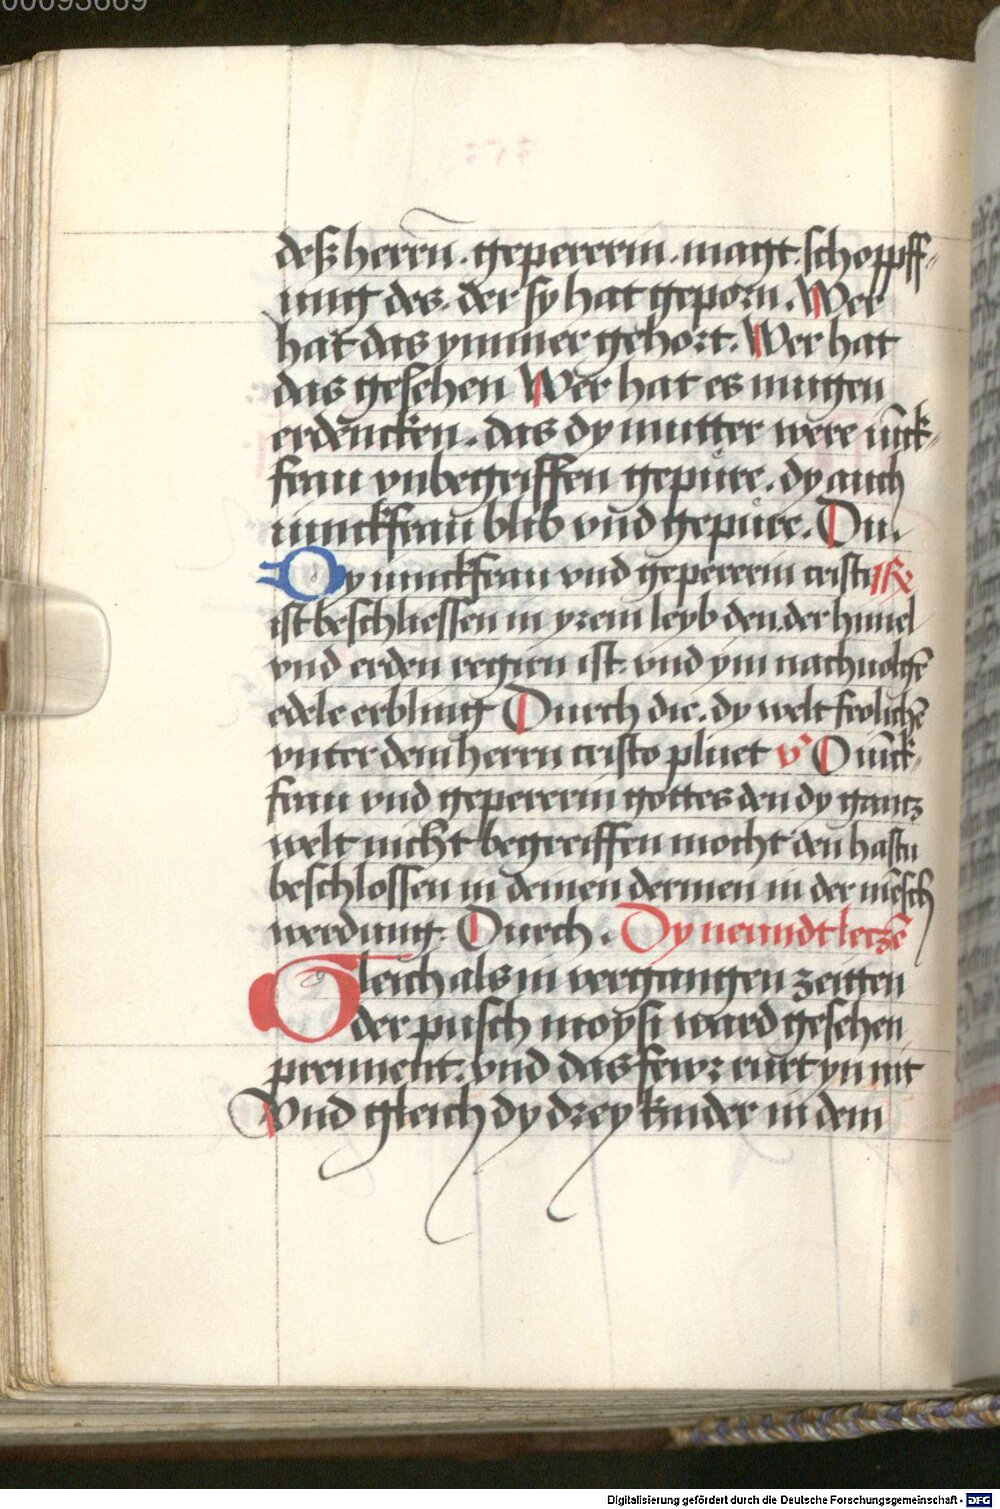 00093669
deß herrn . gepererin . magt . schopff-
ung des . der sy hat geporn . Wer
hat das ymmer gehort . Wer hat
das gesehen Wer hat es mugen
erdencken . das dy mutter were iūck-
frau vnbegriffen gepure . dy auch
iunckfrau blib vnd gepure . Du.
Dy iunckfrau vnd gepererin cristi
ist beschliessen in yrem leyb den . der himel
vnd erden regirn ist . vnd ym nachuolgē
edele erbling Durch die . dy welt frolichē
vnter dem herrn cristo pluet v̄ O iūck-
frau vnd gepererin gottes den dy gantz
welt nicht begreiffen mocht den hastu
beschlossen in deinen dermen in der mēsch
werdung . Durch . Dy neundt leczē
Gleich als in vergangen zeitten
der pusch moysi ward gesehen
prennent . vnd das fewr rurt yn nit
Vnd gleich dy drey kinder in dem
Digitalisierung gefördert durch die Deutsche Forschungsgemeinschaft - DFG